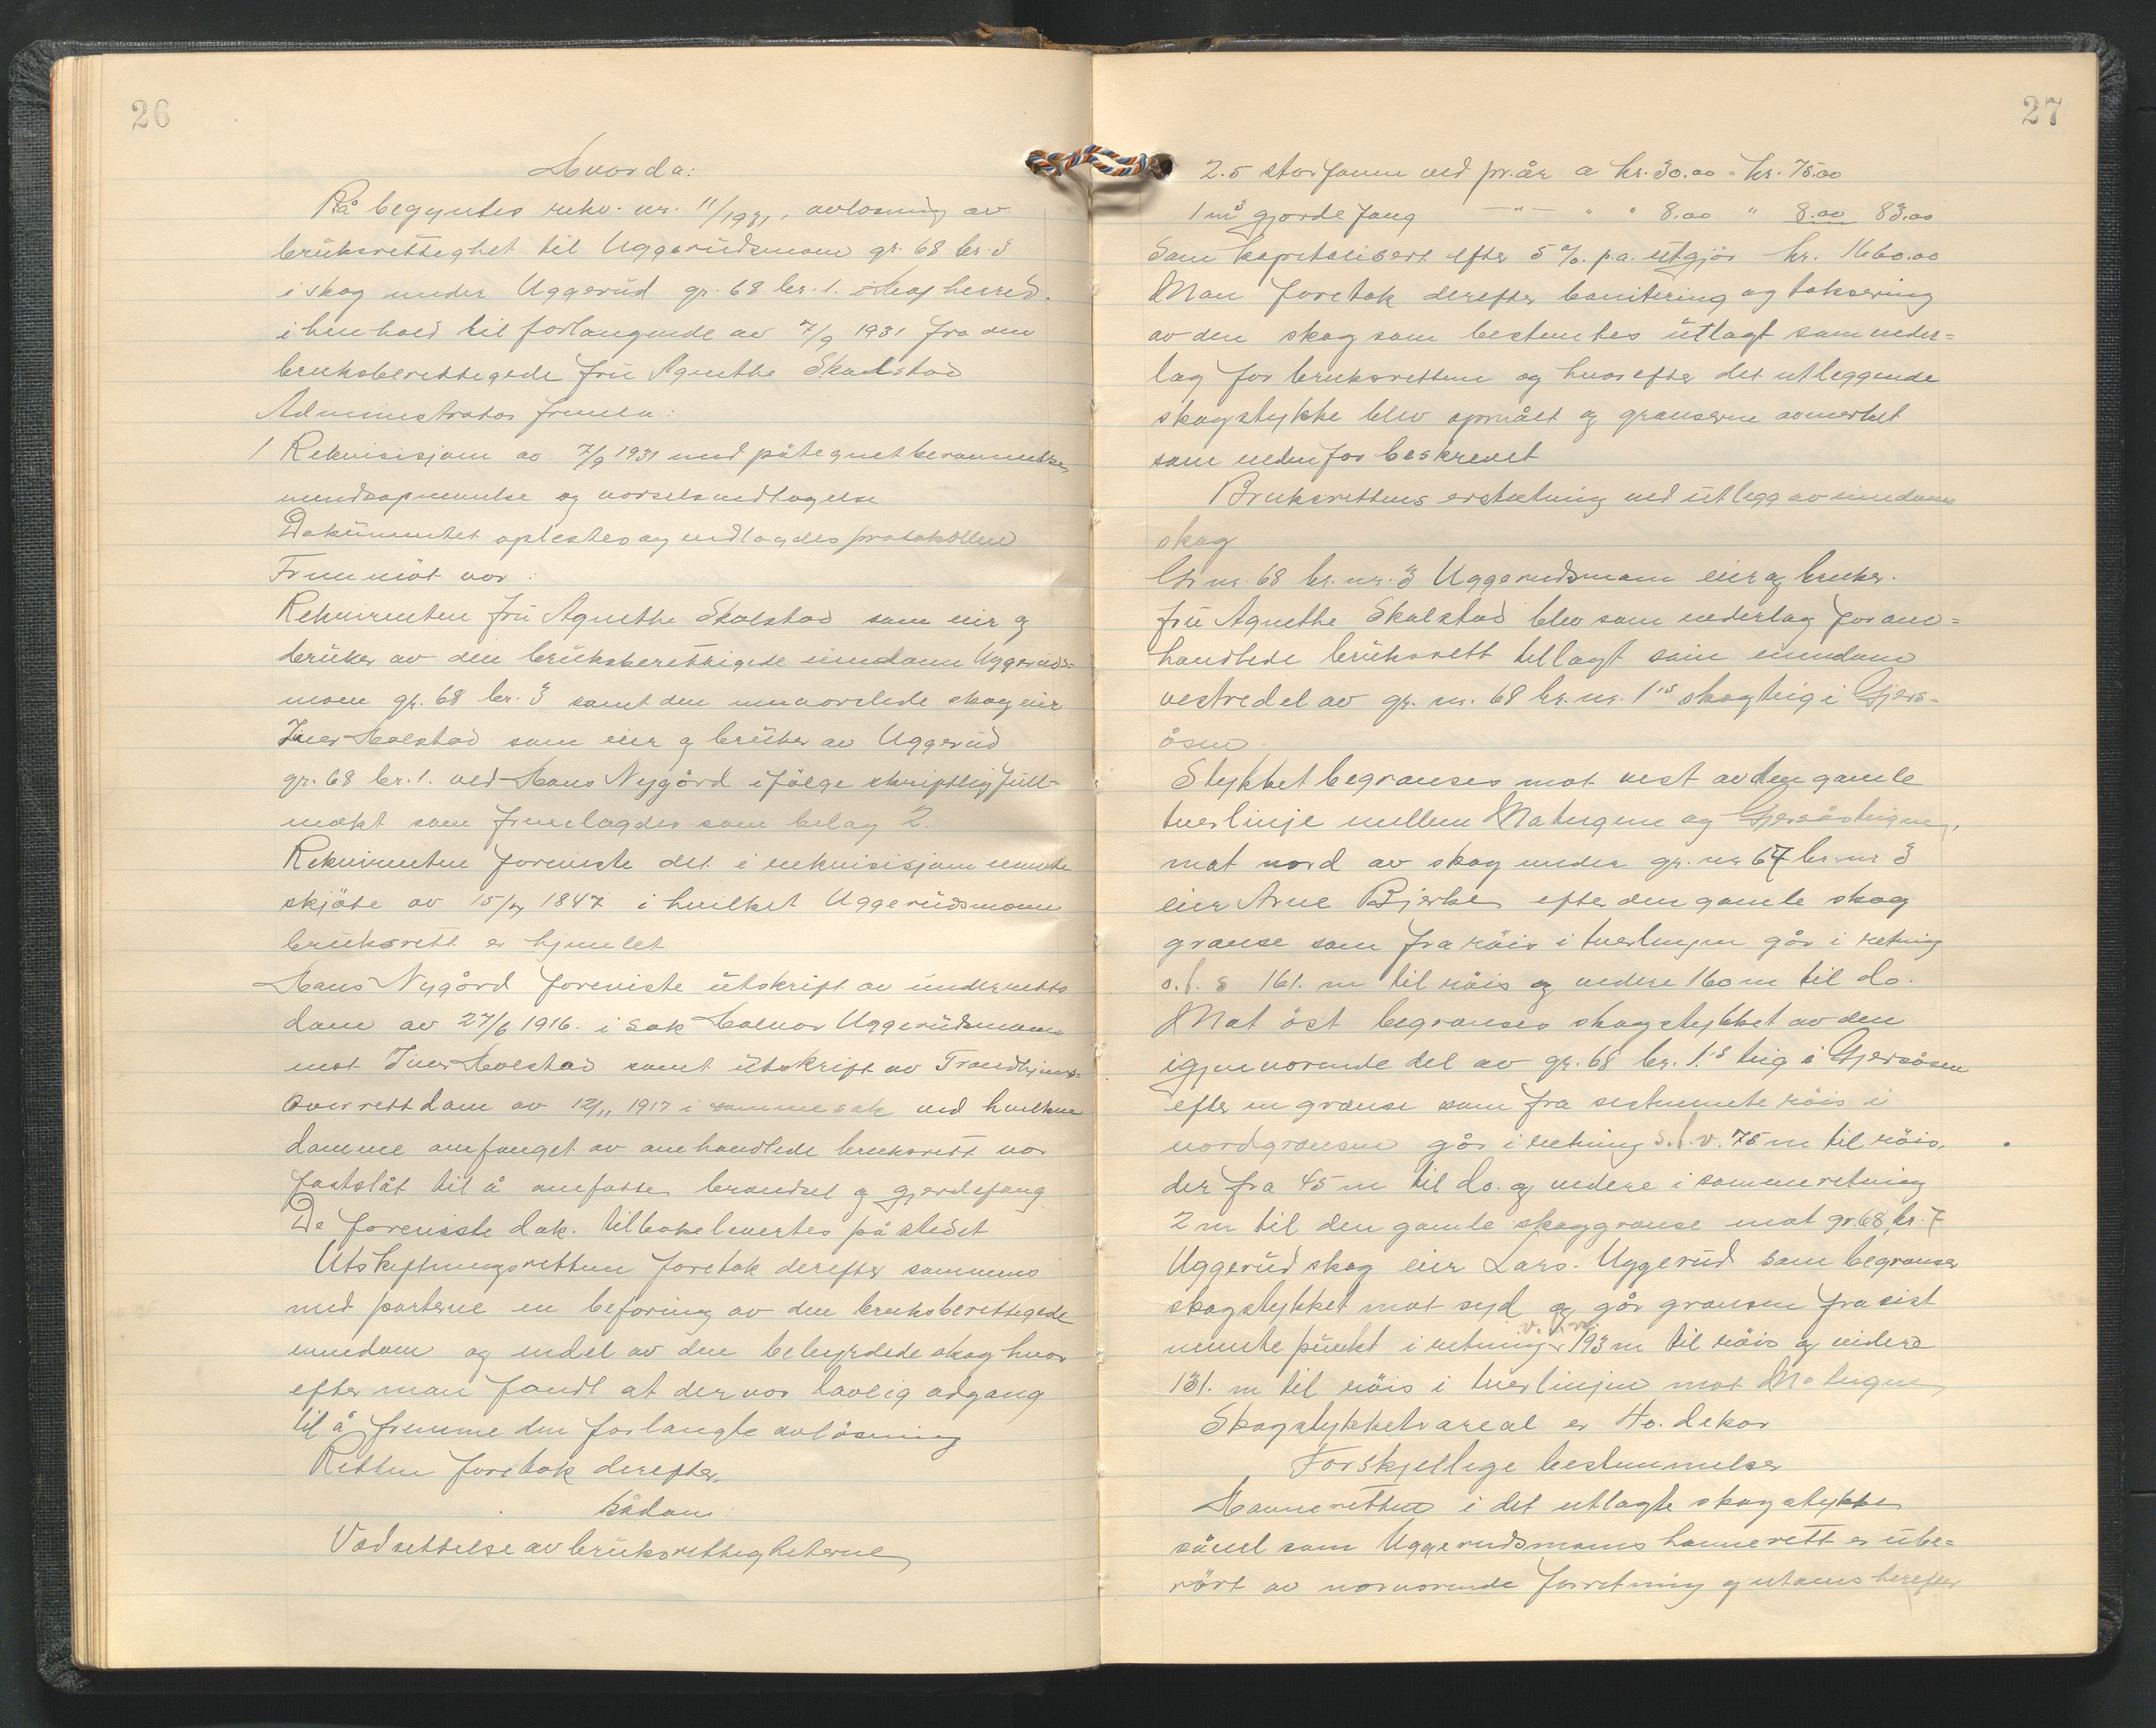 26
Hvorda:
På begyntes rekv. nr. 11/1931, avløsning av
bruksrettighet til Uggerudsmoen gr. 68 br. 3
i skog under Uggerud gr. 68 br. 1. i herred.
i henhold til forlangende av 7/9 1931 fra den
bruksberettigede frú Agnethe Skolstad
Administrator fremla:
1 Rekvisisjon av 7/9 1931 med påtegnet berammelse,
mendsopnevnelse og varselsvedtagelse
Dokumentet oplestes og vedlagdes protokollen
Fremmøt var:
Rekvirenten frú Agnethe Skolstad som eier og
brúker av den brúksberettigede eiendom Uggeruds=
moen gr. 68 br. 3 samt den innvarslede skogeier
Iver Holstad som eier og brúker av Uggerúd
gr. 68 br. 1. ved Hans Nygård ifølge skriftlig full-
makt som fremlagdes som bilag 2.
Rekvirenten foreviste det i rekvisisjonen nevnte
skjøte av 15/7 1847 i hvilket Uggerúdsmoens
brúksrett er hjemlet
Hans Nygård foreviste útskrift av underretts
dom av 27/6 1916. i sak Halvor Uggerúdsmoen
mot Iver Holstad samt útskrift av Trondhjems=
Overrettdom av 12/11 1917 i samme sak ved hvilken
domme omfanget av omhandlede bruksrett var
fastslåt til å omfatte brendsel og gjerdefang
De foreviste dok. tilbakelevertes på stedet
Utskiftningsretten foretok derefter sammens
med parterne en befaring av den bruksberettigede
eiendom og endel av den beheftede skog hvor
efter man fandt at der var lovlig adgang
til å fremme den forlangte avløsning
Retten foretok derefter,
sådan:
Verdsettelse av brúksrettigheterne
27
2.5 storfavn ved pr. år a kr. 30.00 = kr. 75.00
1 m³ gjerdefang — " — " " 8.00 " 8.00 83.00
Som kapitalisert efter 5 % p.a. utgjør kr. 1660.00
Man foretok derefter bonitering og taksering
av den skog som bestemtes útlagt som veder=
lag for bruksretten og hvorefter det utleggende
skogstykke blev opmålt og grensene avmerket
som nedenfor beskrevet
Bruksrettens erstatning ved útlegg av eiendoms
skog
Gr. nr. 68 br. nr. 3 Uggerudsmoen eier og bruker.
frú Agnethe Skolstad blev som vederlag for om=
handlede brúksrett tillagt sin eiendom
vestre del av gr. nr. 68 br. nr. 1's skogteig i Gjers=
åsen.
Stykket begrenses mot vest av den gamle
tverlinje mellem Moteigene og Gjersåsteigene,
mot nord av skog under gr. nr 67 br. nr 3
eier Arne Bjerke efter den gamle skog
grense som fra røis i tverlinjen går i retning
o.t.s 161. m til røis og videre 160 m til do.
Mot øst begrenses skogstykket av den
igjenværende del av gr. 68 br. 1.'s teig i Gjersåsen
efter en grense som fra sistnevnte røis i
nordgrensen går i retning s.t.v. 75 m til røis,
der fra 45 m til do. og videre i samme retning
2 m til den gamle skoggrense mot gr. 68, br. 7
Uggerud skog eier Lars. Uggerúd som begrenser
skogstykket mot syd og går grensen fra sist
nevnte púnkt i retning v.t.n. 193 m til røis og videre
131. m til røis i tverlinjen mot Moteigene
Skogstykkets areal er 40. dekar
Forskjellige bestemmelser
Havneretten i det utlagte skogstykke
såvel som Uggerudsmoens havnerett er úbe=
rørt av nærværende forretning og utøves herefter